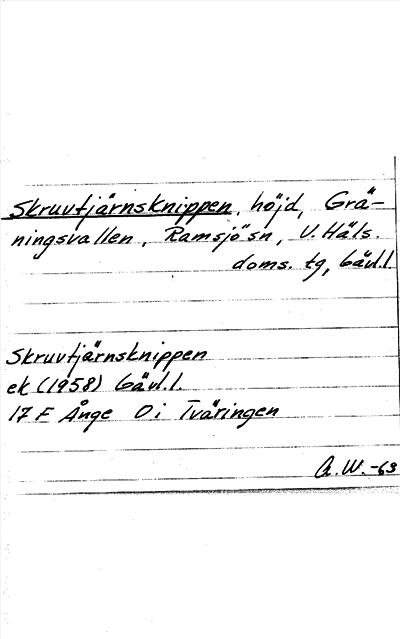 Skruvtjärnsknippen, höjd, Grä-
ningsvallen, Ramsjö sn, V. Häls.
doms. tg, Gävl.l.
Skruvtjärnsknippen
ek (1958) Gävl.l.
17 F Ånge 0 i Tväringen
A.W. -63